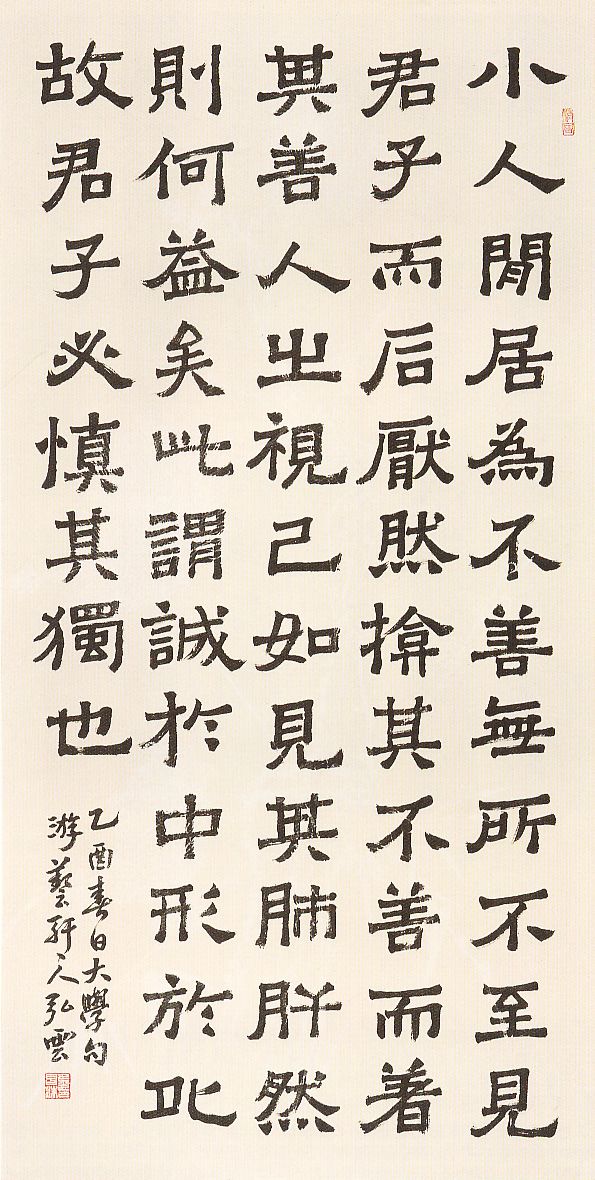 小人閒居為不善無所不至見
君子而后厭然揜其不善而著
其善人之視己如見其肺肝然
則何益矣此謂誠於中形於外
故君子必慎其獨也
乙酉春日大學句
游藝軒人弘雲